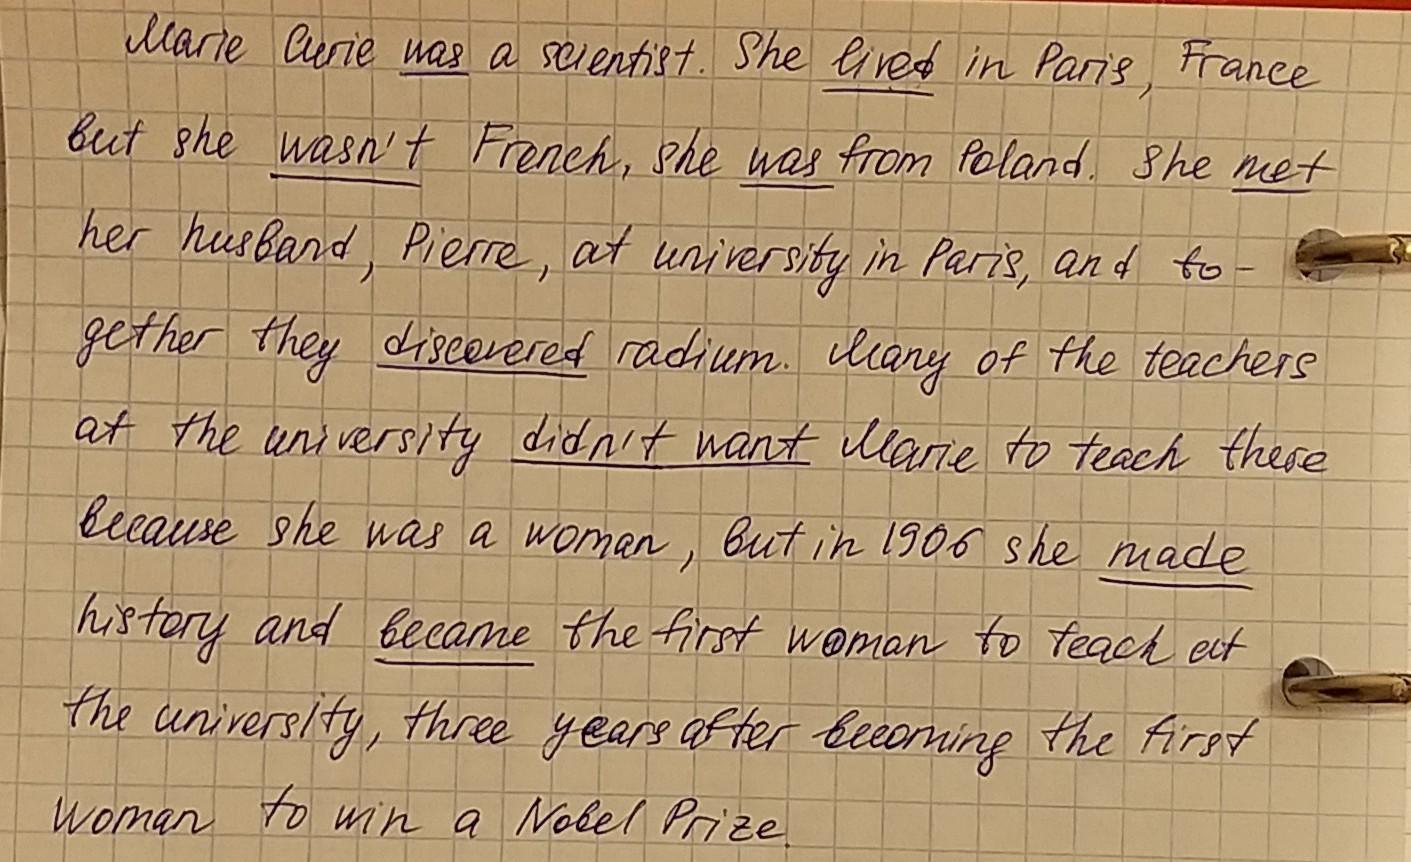 Marie Curie was a scientist. She lived in Paris, France
but she wasn't French, she was from Poland. She met
her husband, Pierre, at university in Paris, and to-
gether they discovered radium. Many of the teachers
at the university didn't want Marie to teach there
because she was a woman, but in 1906 she made
history and became the first woman to teach at
the university, three years after becoming the first
woman to win a Nobel Prize.